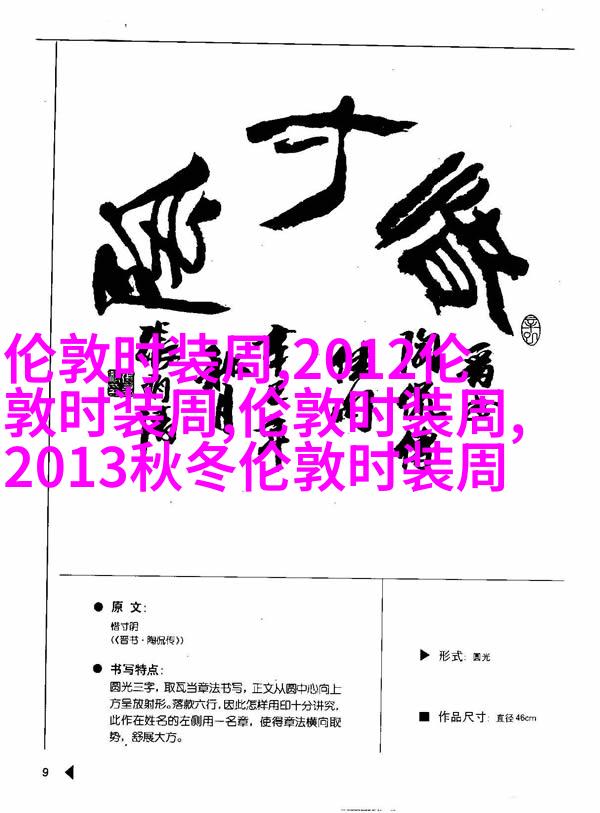 惜寸阴
伦敦时装周,2012伦
敦时装周,伦敦时装周,
2013秋冬伦敦时装周
● 原 文:
惜寸阴
《晋书·陶侃传》
● 书写特点:
圆光三字，取瓦当章法书写，正文从圆中心向上
方呈放射形。落款六行，因此怎样用印十分讲究，
此作在姓名的左侧用一名章，使得章法横向取
势，舒展大方。
▶ 形式: 圆光
■ 作品尺寸: 直径46cm
9 ◀